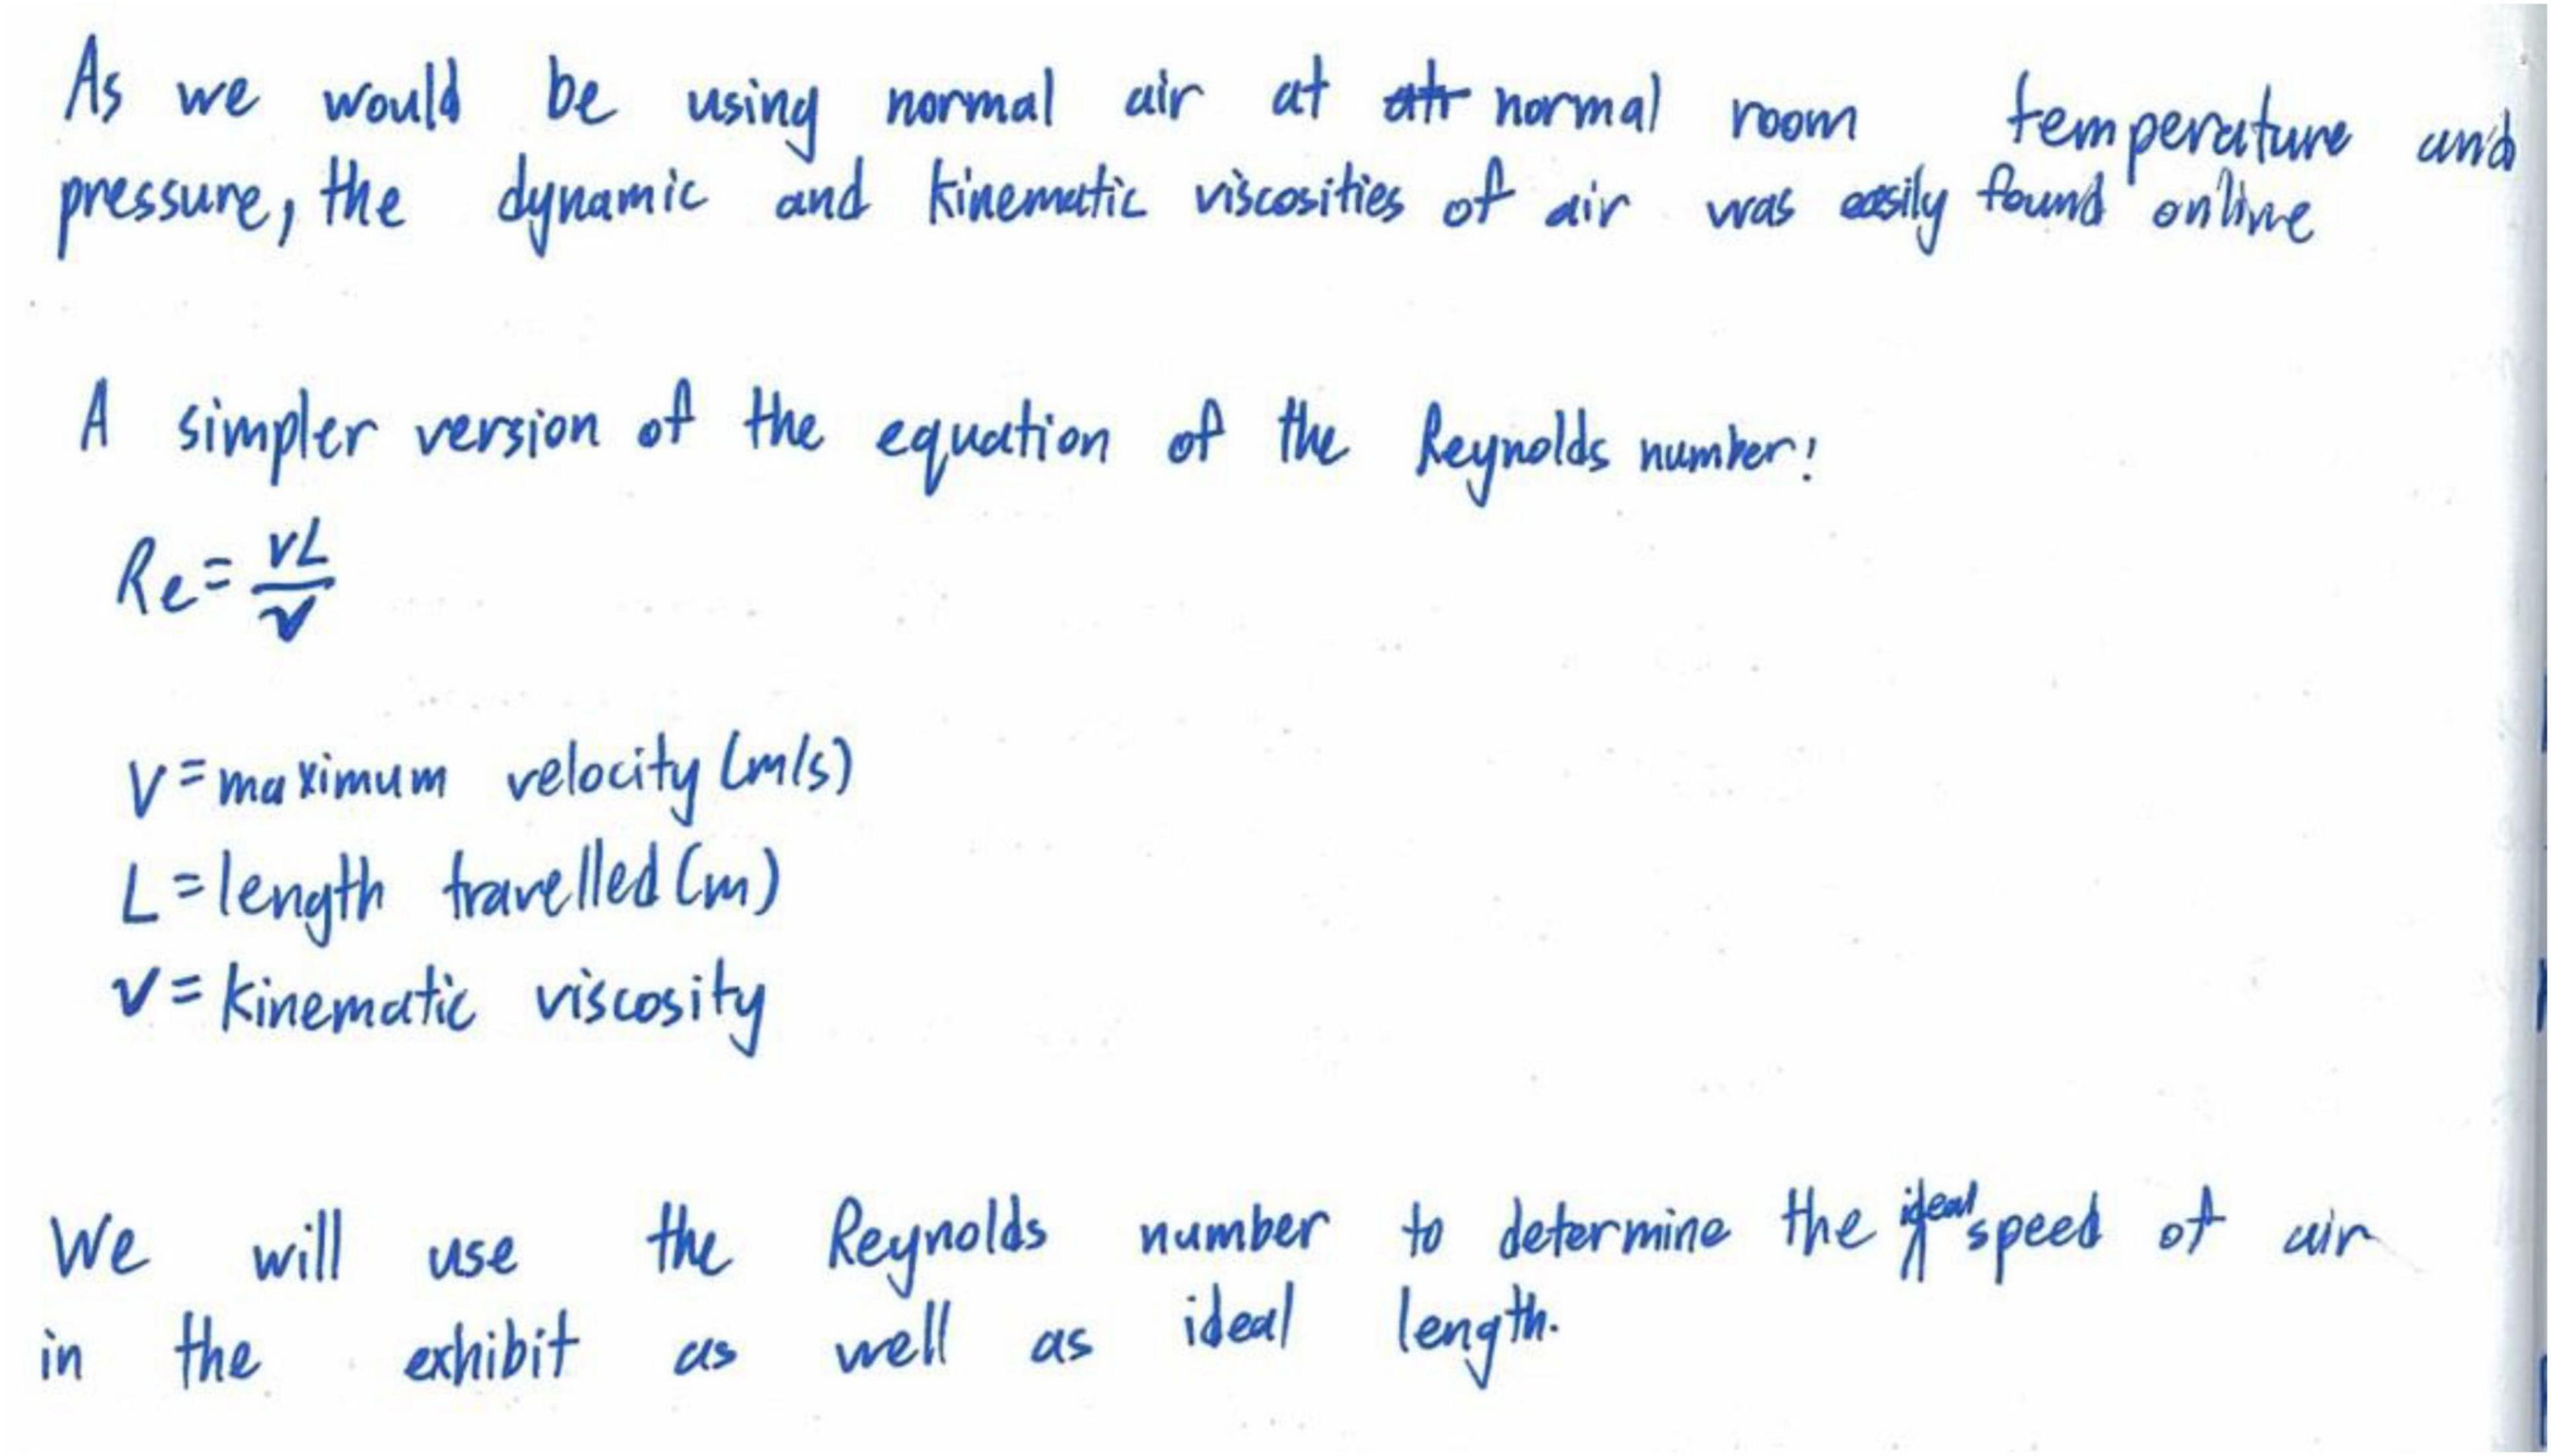 As we would be using normal air at normal room temperature and
pressure, the dynamic and kinematic viscosities of air was easily found online
A simpler version of the equation of the Reynolds number:
Re = vL / ν
V = maximum velocity (m/s)
L = length travelled (m)
ν = kinematic viscosity
We will use the Reynolds number to determine the ideal speed of air
in the exhibit as well as ideal length.